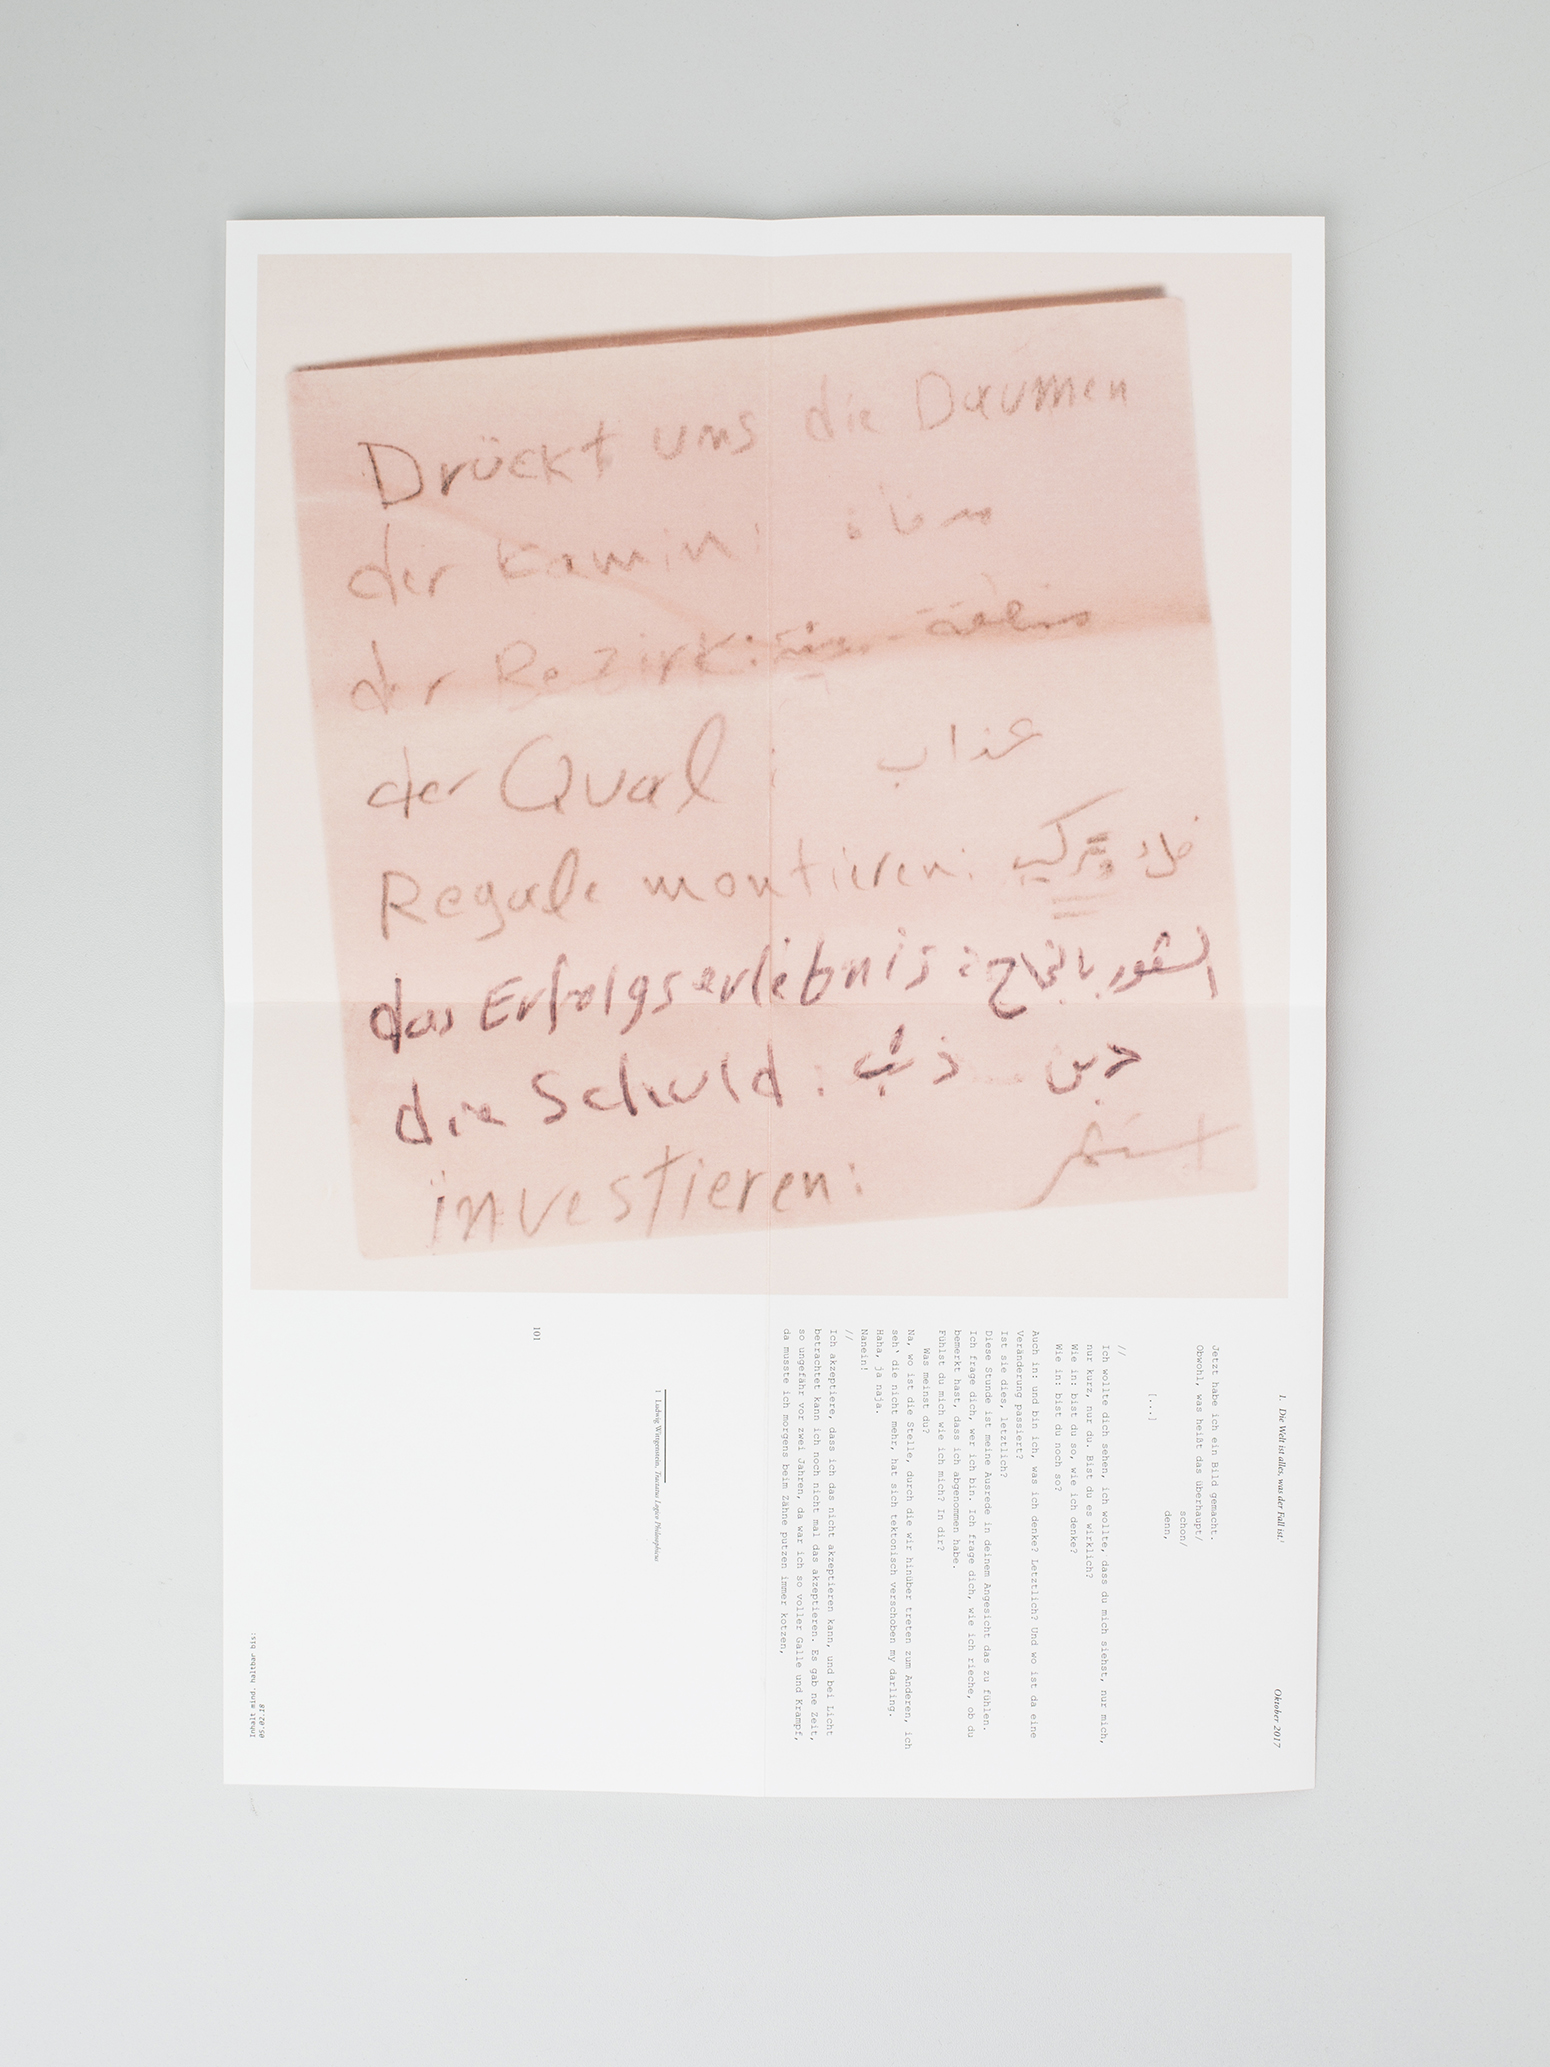 Drückt uns die Daumen
der Kamin: مدفأة
der Bezirk: منطقة
der Qual : عذاب
Regale montieren:
das Erfolgserlebnis: الشعور بالنجاح
die Schuld: ذنب دين
investieren:
1. Die Welt ist alles, was der Fall ist.¹ Oktober 2017
Jetzt habe ich ein Bild gemacht.
Obwohl, was heißt das überhaupt/
schon/
denn,
[...]
//
Ich wollte dich sehen, ich wollte, dass du mich siehst, nur mich,
nur kurz, nur du. Bist du es wirklich?
Wie in: bist du so, wie ich denke?
Wie in: bist du noch so?
Auch in: und bin ich, was ich denke? Letztlich? Und wo ist da eine
Veränderung passiert?
Ist sie dies, letztlich?
Diese Stunde ist meine Ausrede in deinem Angesicht das zu fühlen.
Ich frage dich, wer ich bin. Ich frage dich, wie ich rieche, ob du
bemerkt hast, dass ich abgenommen habe.
Fühlst du mich wie ich mich? In dir?
Was meinst du?
Na, wo ist die Stelle, durch die wir hinüber treten zum Anderen, ich
seh' die nicht mehr, hat sich tektonisch verschoben my darling.
Haha, ja naja.
Nanein!
//
Ich akzeptiere, dass ich das nicht akzeptieren kann, und bei Licht
betrachtet kann ich noch nicht mal das akzeptieren. Es gab ne Zeit,
so ungefähr vor zwei Jahren, da war ich so voller Galle und Krampf,
da musste ich morgens beim Zähne putzen immer kotzen,
1 Ludwig Wittgenstein, Tractatus Logico Philosophicus
101
05.02.18
Inhalt mind. haltbar bis: